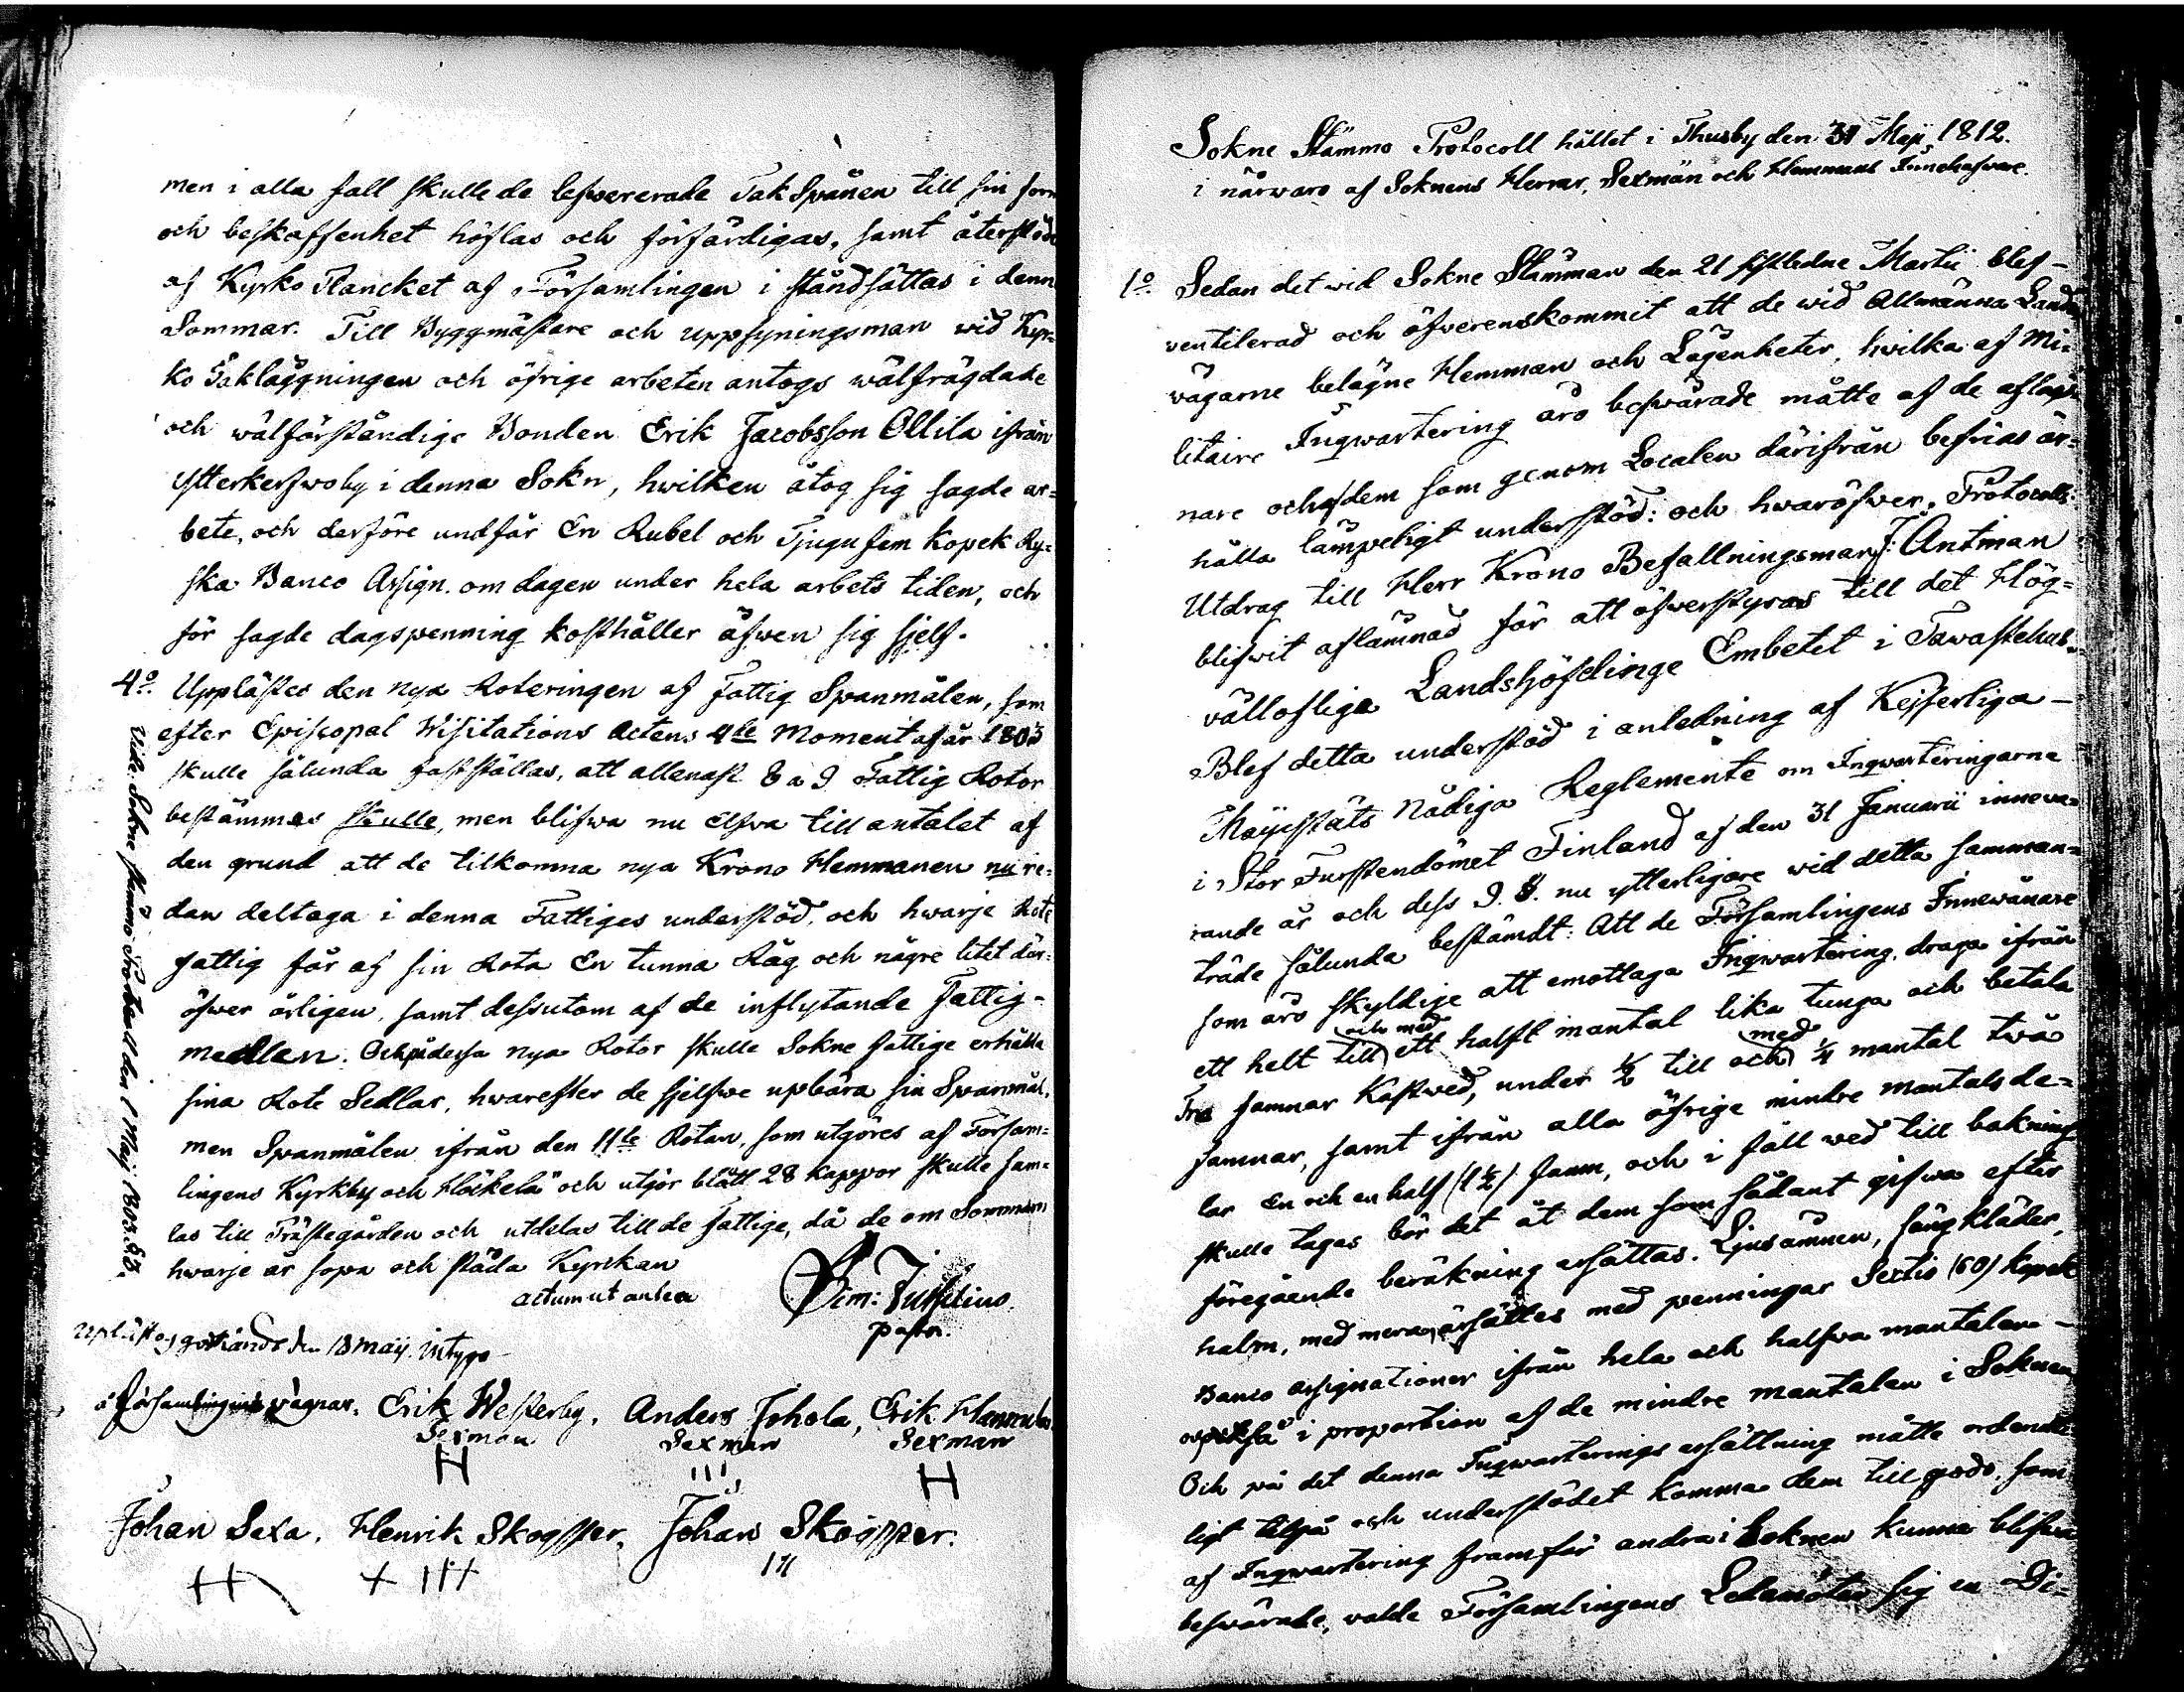 men i alla fall skulle de lefwererade TakSpånen till sin form
och beskaffenhet höflas och förfärdigas, samt återstoden
af Kyrko Plancket af Församlingen i ståndsättas i denna
Sommar. Till Byggmästare och uppsyningsman wid Kyr=
ko Takläggningen och öfrige arbeten antogs wälfrägdade
och wälförståndige Bonden Erik Jacobsson Ollila ifrån
Ytterkerswoby i denna Sokn, hwilken åtog sig sagde ar=
bete, och derföre undfår En Rubel och Tjugufem kopek Ry=
ska Banco Assign. om dagen under hela arbets tiden, och
för sagde dagspenning kosthåller äfwen sig sjelf.
4o. Upplästes den nya Roteringen af Fattig Spanmålen, som
efter Episcopal Wisitations Actens 4te Moment af år 1803
skulle sålunda fastställas, att allenast 8 a 9 Fattig Rotor
bestämmas skulle, men blifwa nu elfwa till antalet af
den grund att de tilkomna nya Krono Hemmanen nu re=
dan deltaga i denna Fattiges understöd, och hwarje Rote
fattig får af sin Rota En tunna Råg och någre litet där=
öfwer årligen, samt dessutom af de inflytande Fattig=
medlen. Och på dessa nya Rotor skulle Sokne fattige erhålla
sina Rote Sedlar, hwarefter de sjelfwe upbära sin Spanmål,
men Spanmålen ifrån den 11te Rotan, som utgöres af Försam=
lingens Kyrkby och Höckela och utgör blått 28 kappor skulle sam=
las till Prästegården och utdelas till de fattige, då de om Sommaren
hwarje år sopa och städa Kyrkan
actum ut antea
Sim: Jusselius.
pastor.
Vide Sokne stämmo Protocoll den 1 Maj 1803. §3.
Upläst og godkändt den 18 maij. intyga
å församlingens wägnar. Erik Westerby, Anders Johola, Erik Hannula
Sexman Sexman Sexman
Johan Sexa, Henrik Skogster, Johan Skogster.
Sokne Stämmo Protocoll hållet i Thusby den 31 Maji 1812.
i närwaro af Soknens Herrar, Sexmän och Hemmans Innehafware.
1o. Sedan det wid Sokne Stämman den 21 sistledne Martii blef
ventilerad och öfwerenskommit att de wid Allmänna Lands
vägarne belägne Hemman och Lägenheter, hwilka af Mi=
litaire Inqwartering äro beswärade måtte af de aflägs
nare och af dem som genom Localen därifrån befrias är=
hålla lämpeligt understöd: och hwaröfwer Protocolls
Utdrag till Herr Krono Befallningsman J: Antman
blifwit aflämnad för att öfwerstyras till det Hög=
vällofliga Landshöfdinge Embetet i Tavastehus.
Blef detta understöd i anledning af Kejserliga
Majestäts Nådiga Reglemente om Inqwarteringarne
i Stor Furstendömet Finland af den 31 Januarii inneva=
rande år och dess 9. §. nu ytterligare wid detta samman=
träde sålunda bestämdt: Att de Församlingens Innewånare
som äro skyldige att emottaga Inqwartering, draga ifrån
ett helt till och med ett halft mantal lika tunga och betala
Tre famnar Kastwed, under ½ till och med ¼ mantal twå
famnar, samt ifrån alla öfrige mindre mantals de=
lar En och en half (1½) famn, och i fall wed till bakning
skulle tagas bör det åt dem som sådant gifwa efter
föregående beräkning ersättas. Ljusämnen, sängkläder,
halm, med mera, ersättes med penningar Sextio (60) kopek
Banco assignationer ifrån hela och halfwa mantalen
också i proportion af de mindre mantalen i Soknen
Och på det denna Inqwarterings ersättning måtte ordent
ligt utgå och understödet komma dem till godo, som
af Inqwartering framför andra i Soknen kunna blifwa
beswärade, walde Församlingens Ledamöter sig en Di=